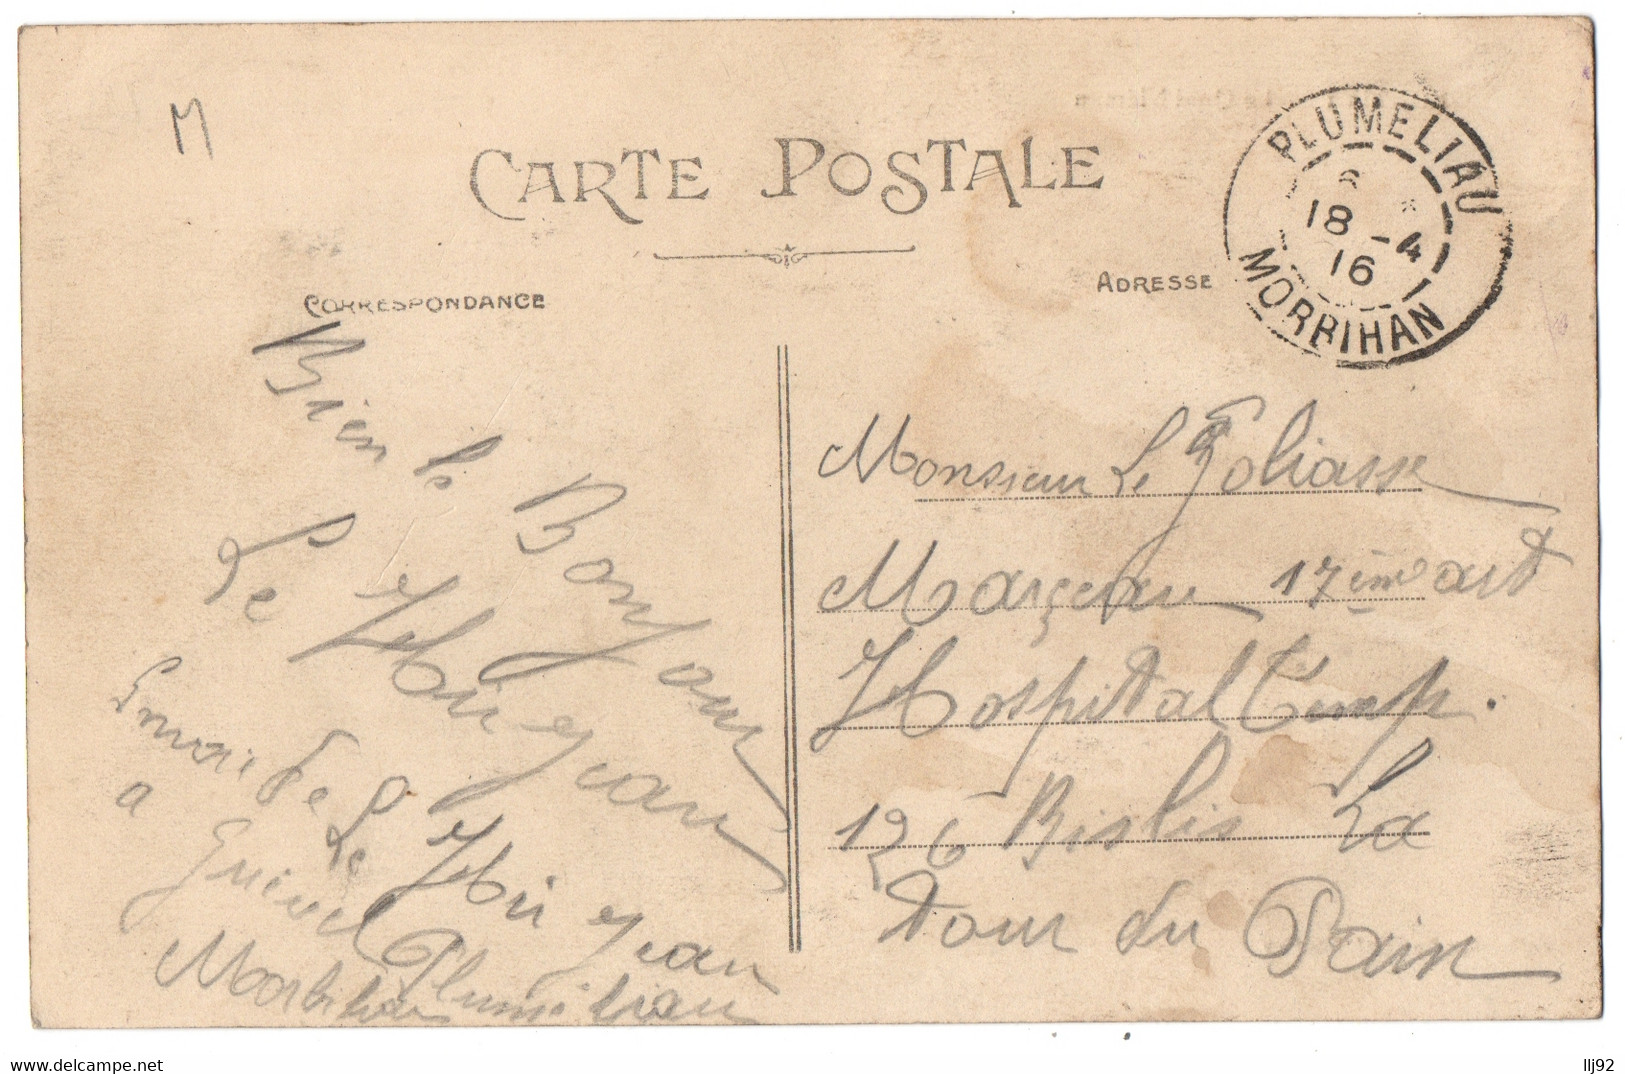 M
CARTE POSTALE
PLUMELIAU
18-4
16
MORBIHAN
CORRESPONDANCE
ADRESSE
Bien le Bonjour
Le Jean
Envoi de Le Jean
a
Morbihan
Monsieur Le Goliasse
Marçeau 17ème art
Hospital Temp.
126 La
tour du Pain
www.delcampe.net
llj92